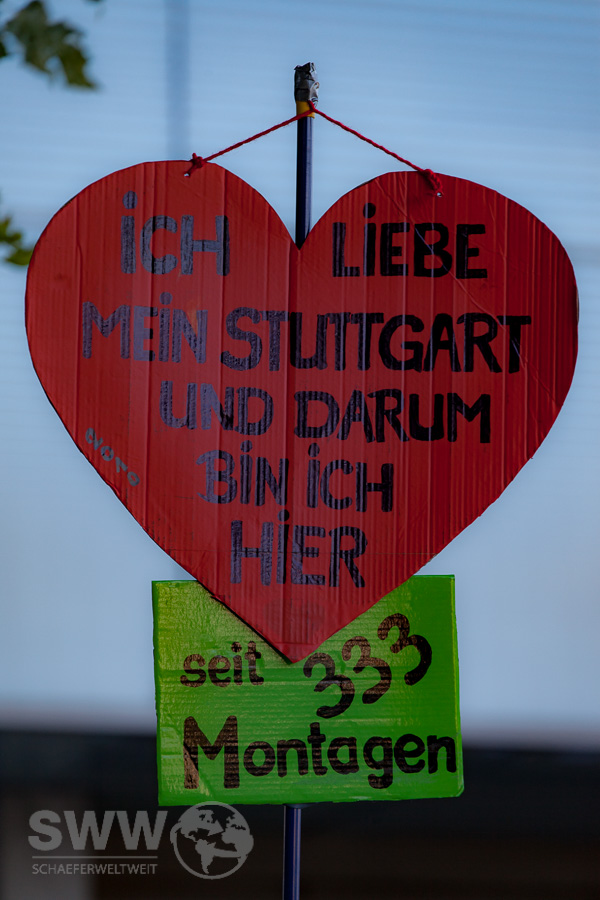 iCH LiEBE
MEiN STUTTGART
UND DARUM
BiN iCH
HiER
seit 333
Montagen
SWW
SCHAEFERWELTWEIT